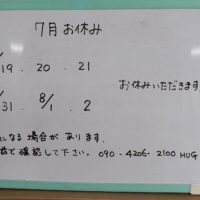 7月お休み
19.20.21
お休みいただきます
31.8/1.2
になる場合があります.
で確認して下さい.090-4206-2100 HUG